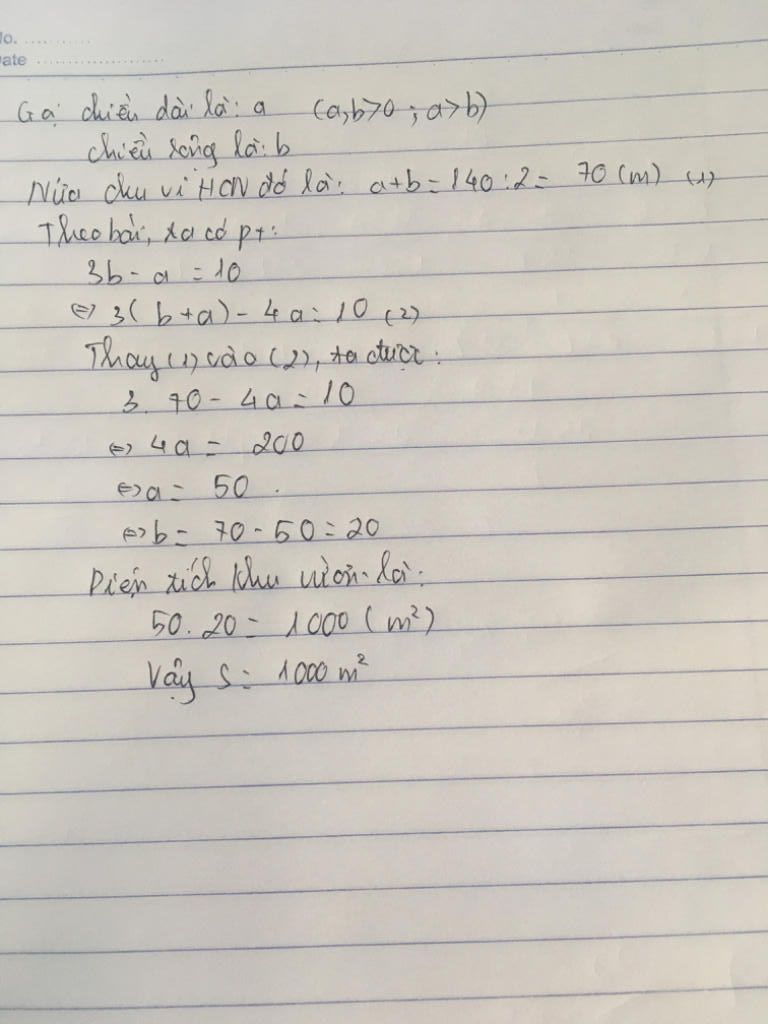 No. ............
Date ........................
Gọi chiều dài là: a (a,b>0 ; a>b)
chiều rộng là: b
Nửa chu vi HCN đó là: a+b = 140 : 2 = 70 (m) (1)
Theo bài, ta có pt:
3b - a = 10
⇔ 3( b+a) - 4a = 10 (2)
Thay (1) vào (2), ta được:
3. 70 - 4a = 10
⇔ 4a = 200
⇔ a = 50 .
⇔ b = 70 - 50 = 20
Diện tích khu vườn là:
50. 20 = 1000 ( m²)
Vậy S = 1000 m²